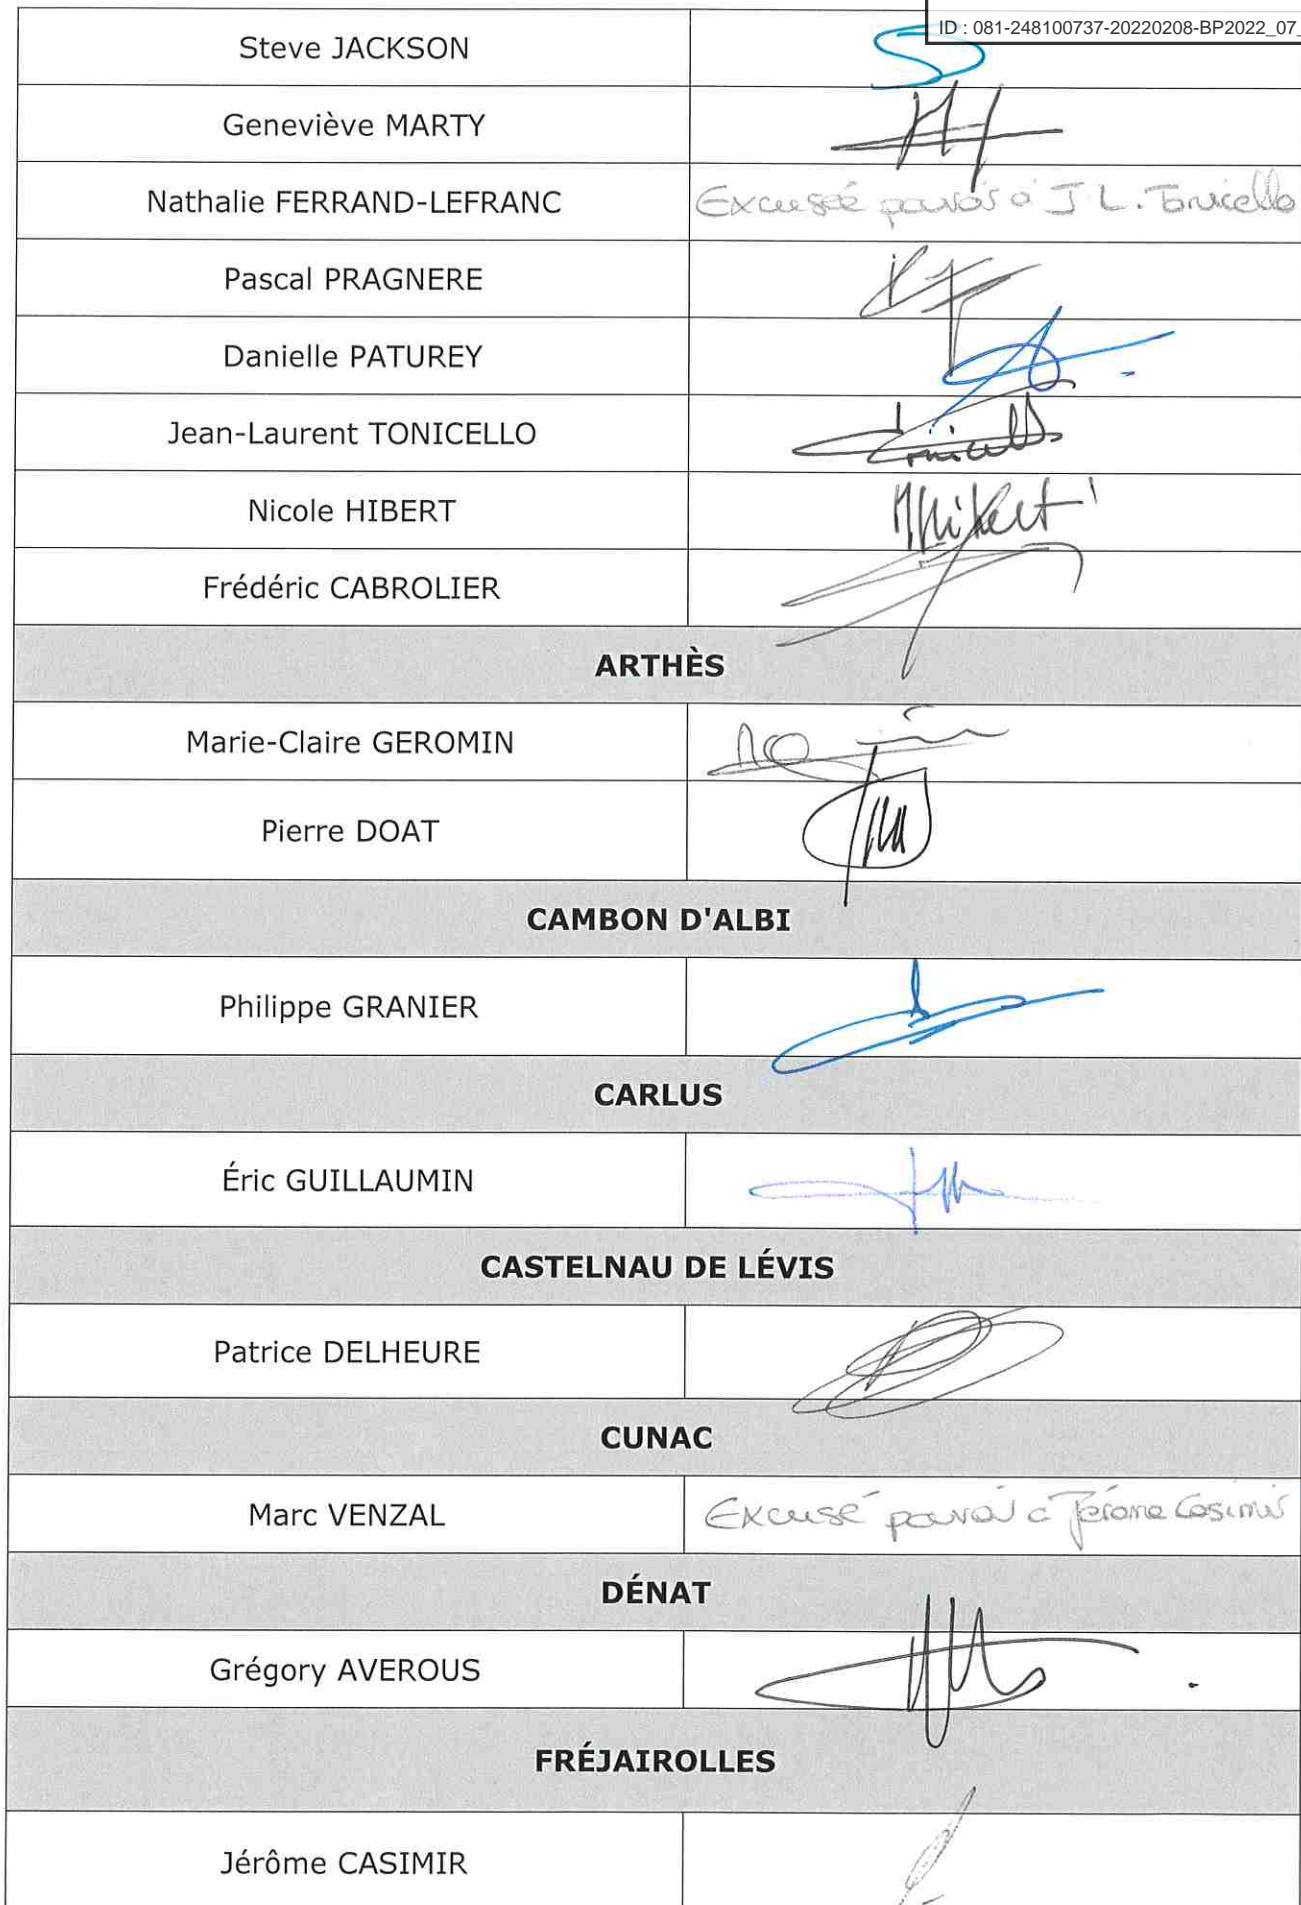 ID : 081-248100737-20220208-BP2022_07_
Steve JACKSON
Geneviève MARTY
Nathalie FERRAND-LEFRANC Excusée pouvoir à J L. Tonicello
Pascal PRAGNERE
Danielle PATUREY
Jean-Laurent TONICELLO Tonicello
Nicole HIBERT NHibert
Frédéric CABROLIER
ARTHÈS
Marie-Claire GEROMIN
Pierre DOAT
CAMBON D'ALBI
Philippe GRANIER
CARLUS
Éric GUILLAUMIN
CASTELNAU DE LÉVIS
Patrice DELHEURE
CUNAC
Marc VENZAL Excusé pouvoir à Jérome Casimir
DÉNAT
Grégory AVEROUS
FRÉJAIROLLES
Jérôme CASIMIR